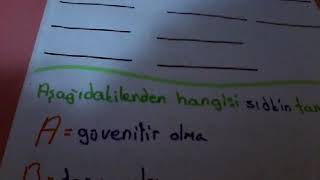 Aşağıdakilerden hangisi sıdk'ın
A= güvenilir olma
B=